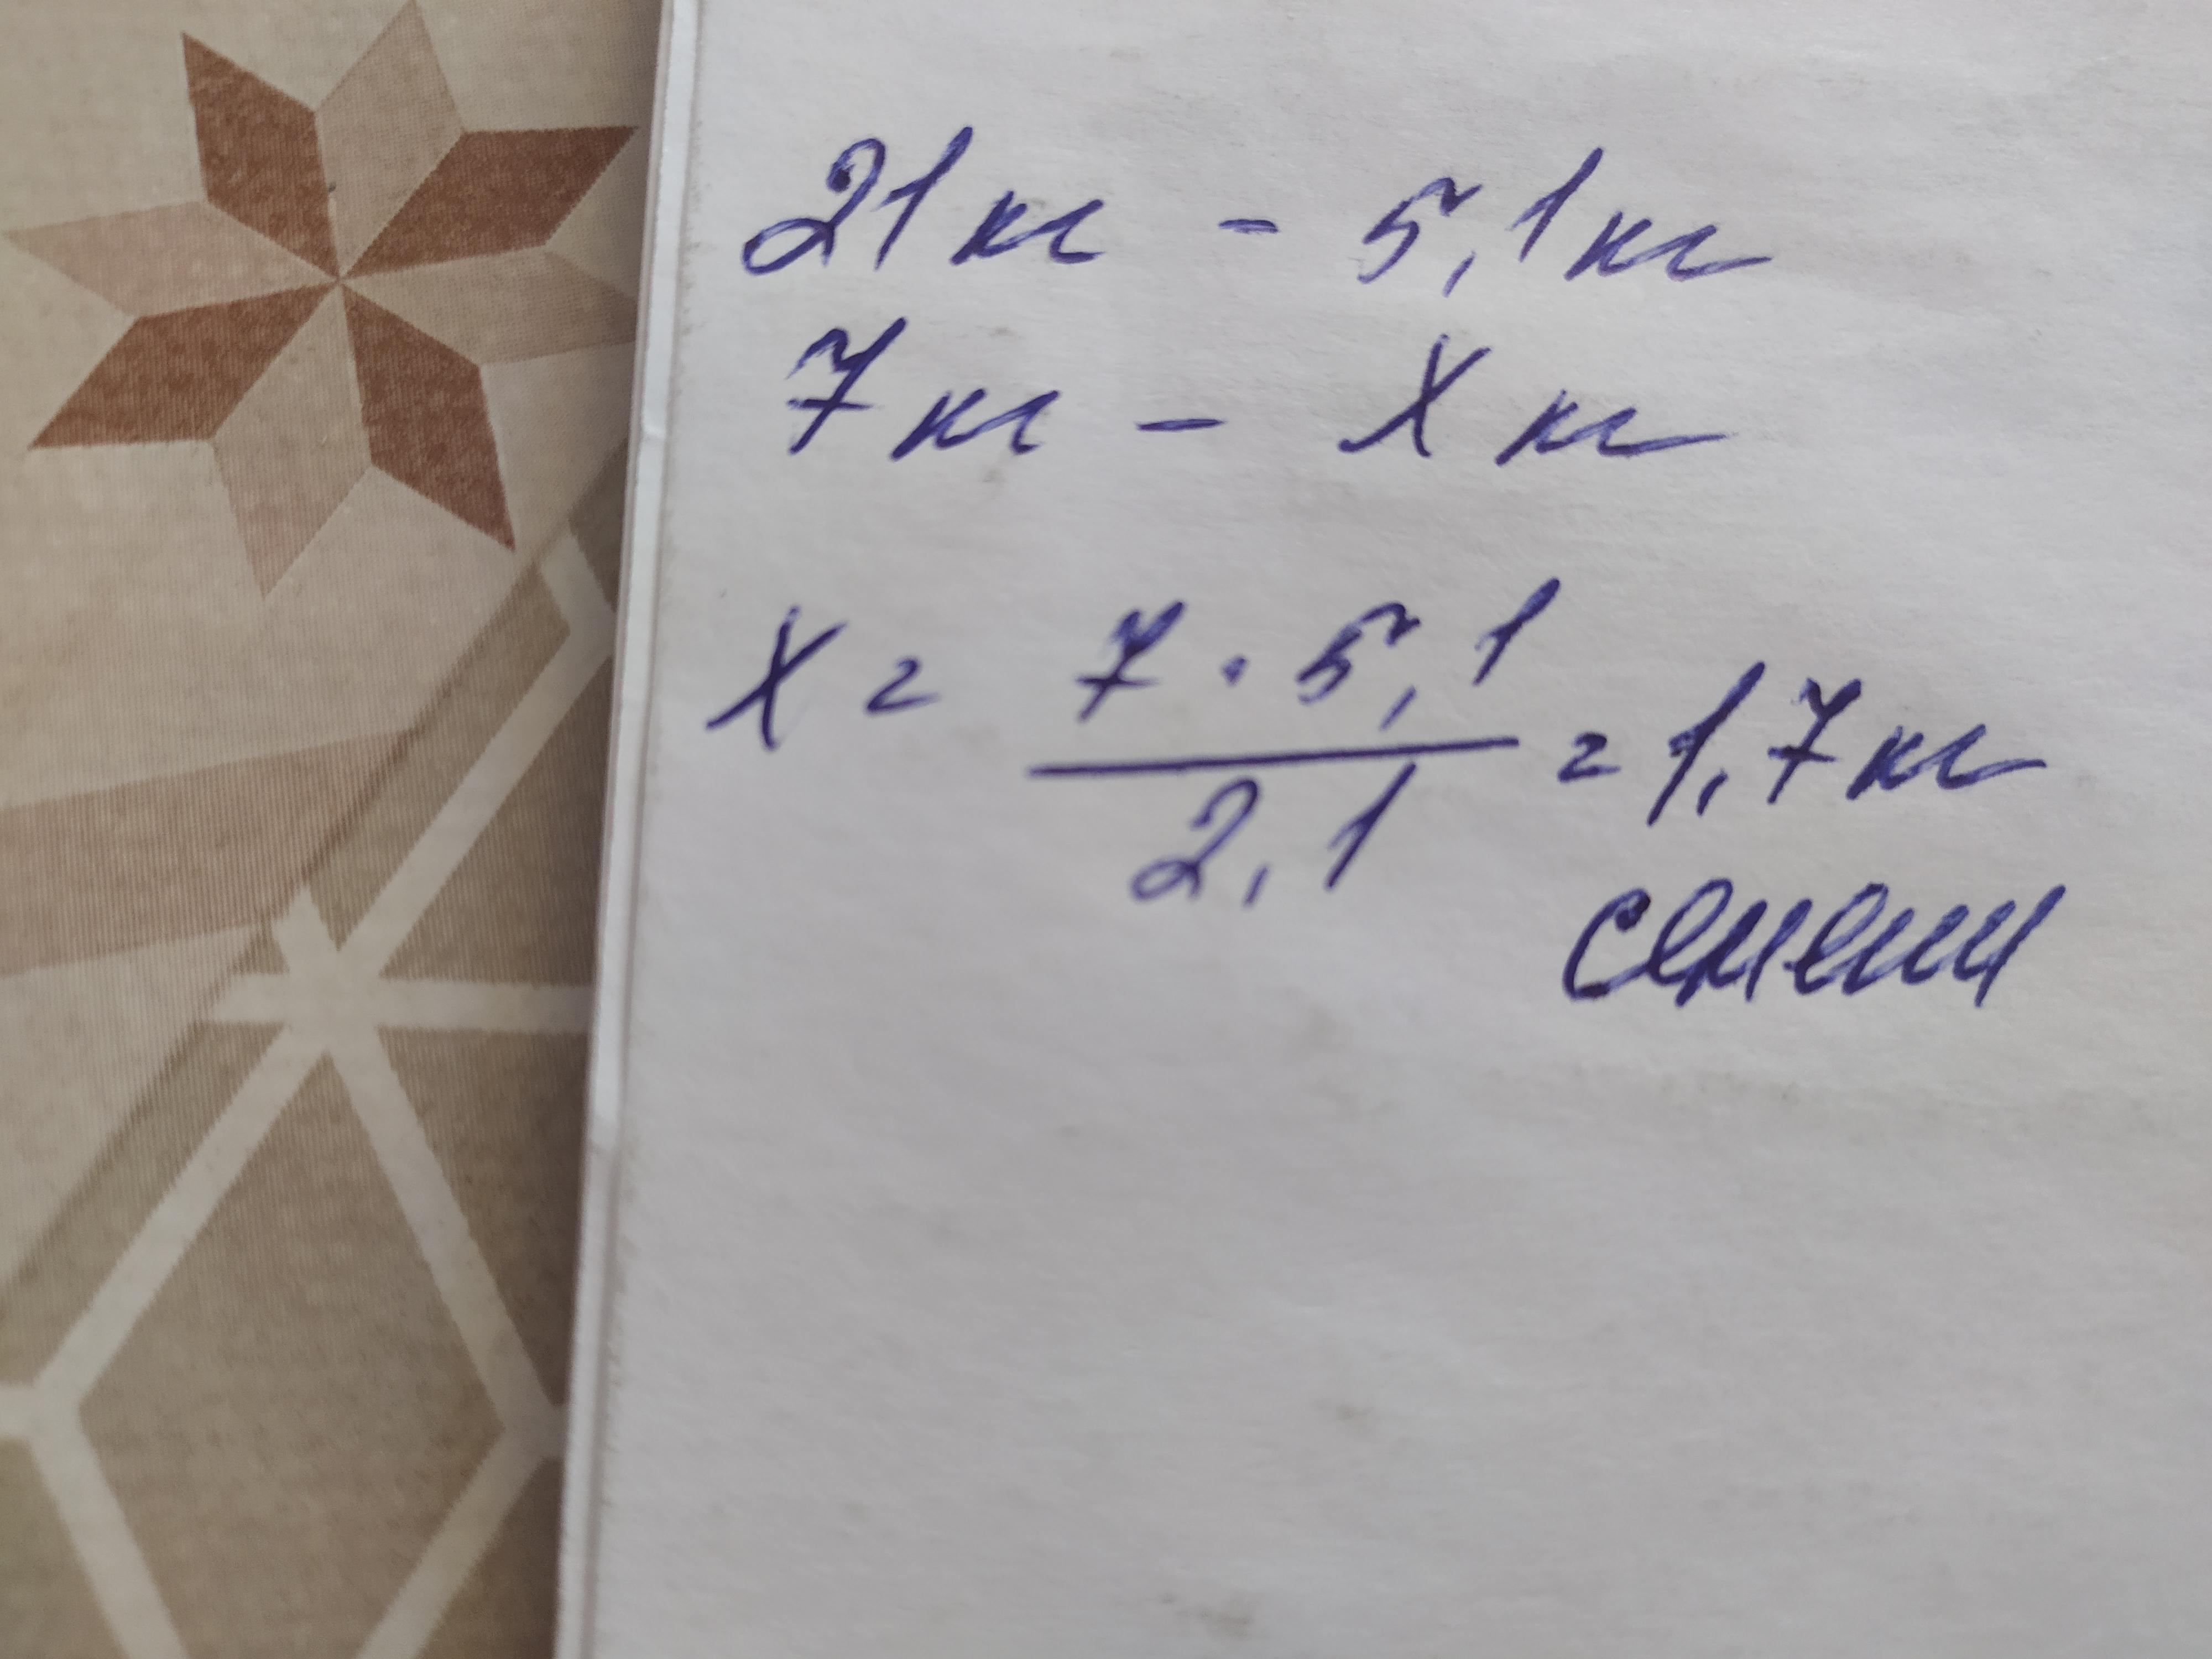 21 кг - 5,1 кг
7 кг - х кг
х = 7 · 5,1 / 2,1 = 1,7 кг
семени